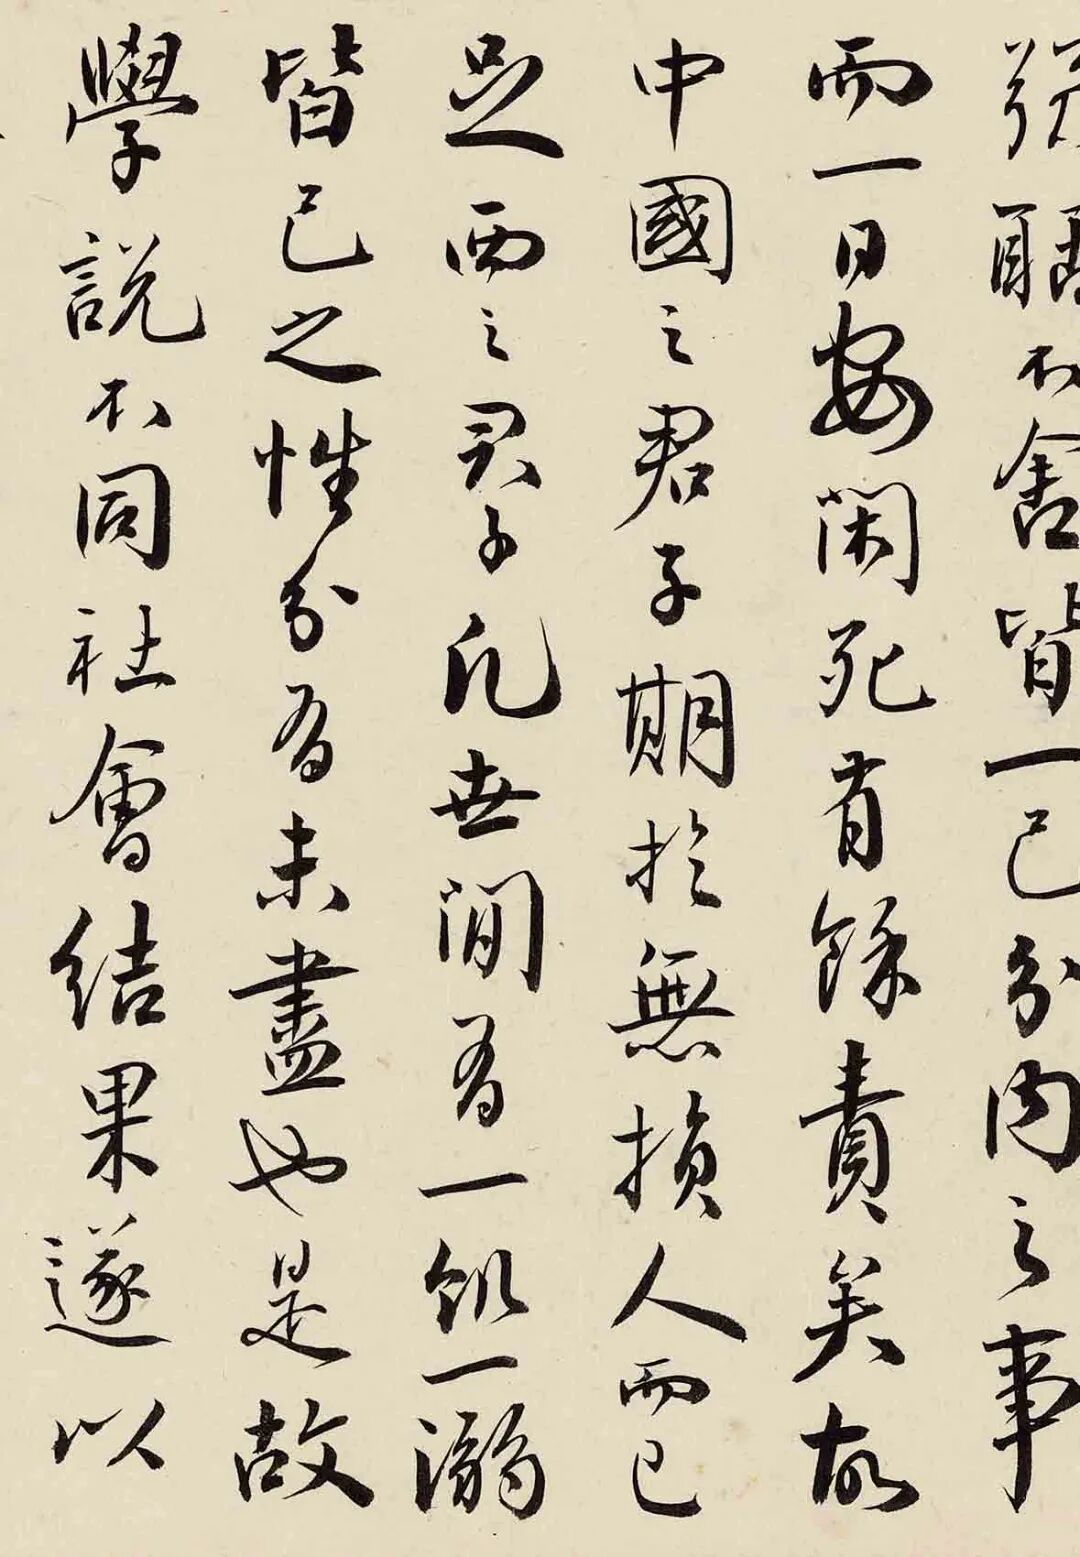 強聒不舍皆一己分内之事
而一日安閑死有餘責矣故
中國之君子期於無損人而已
足西之君子凡世間有一飢一溺
皆己之性分有未盡也是故
學說不同社會結果遂以